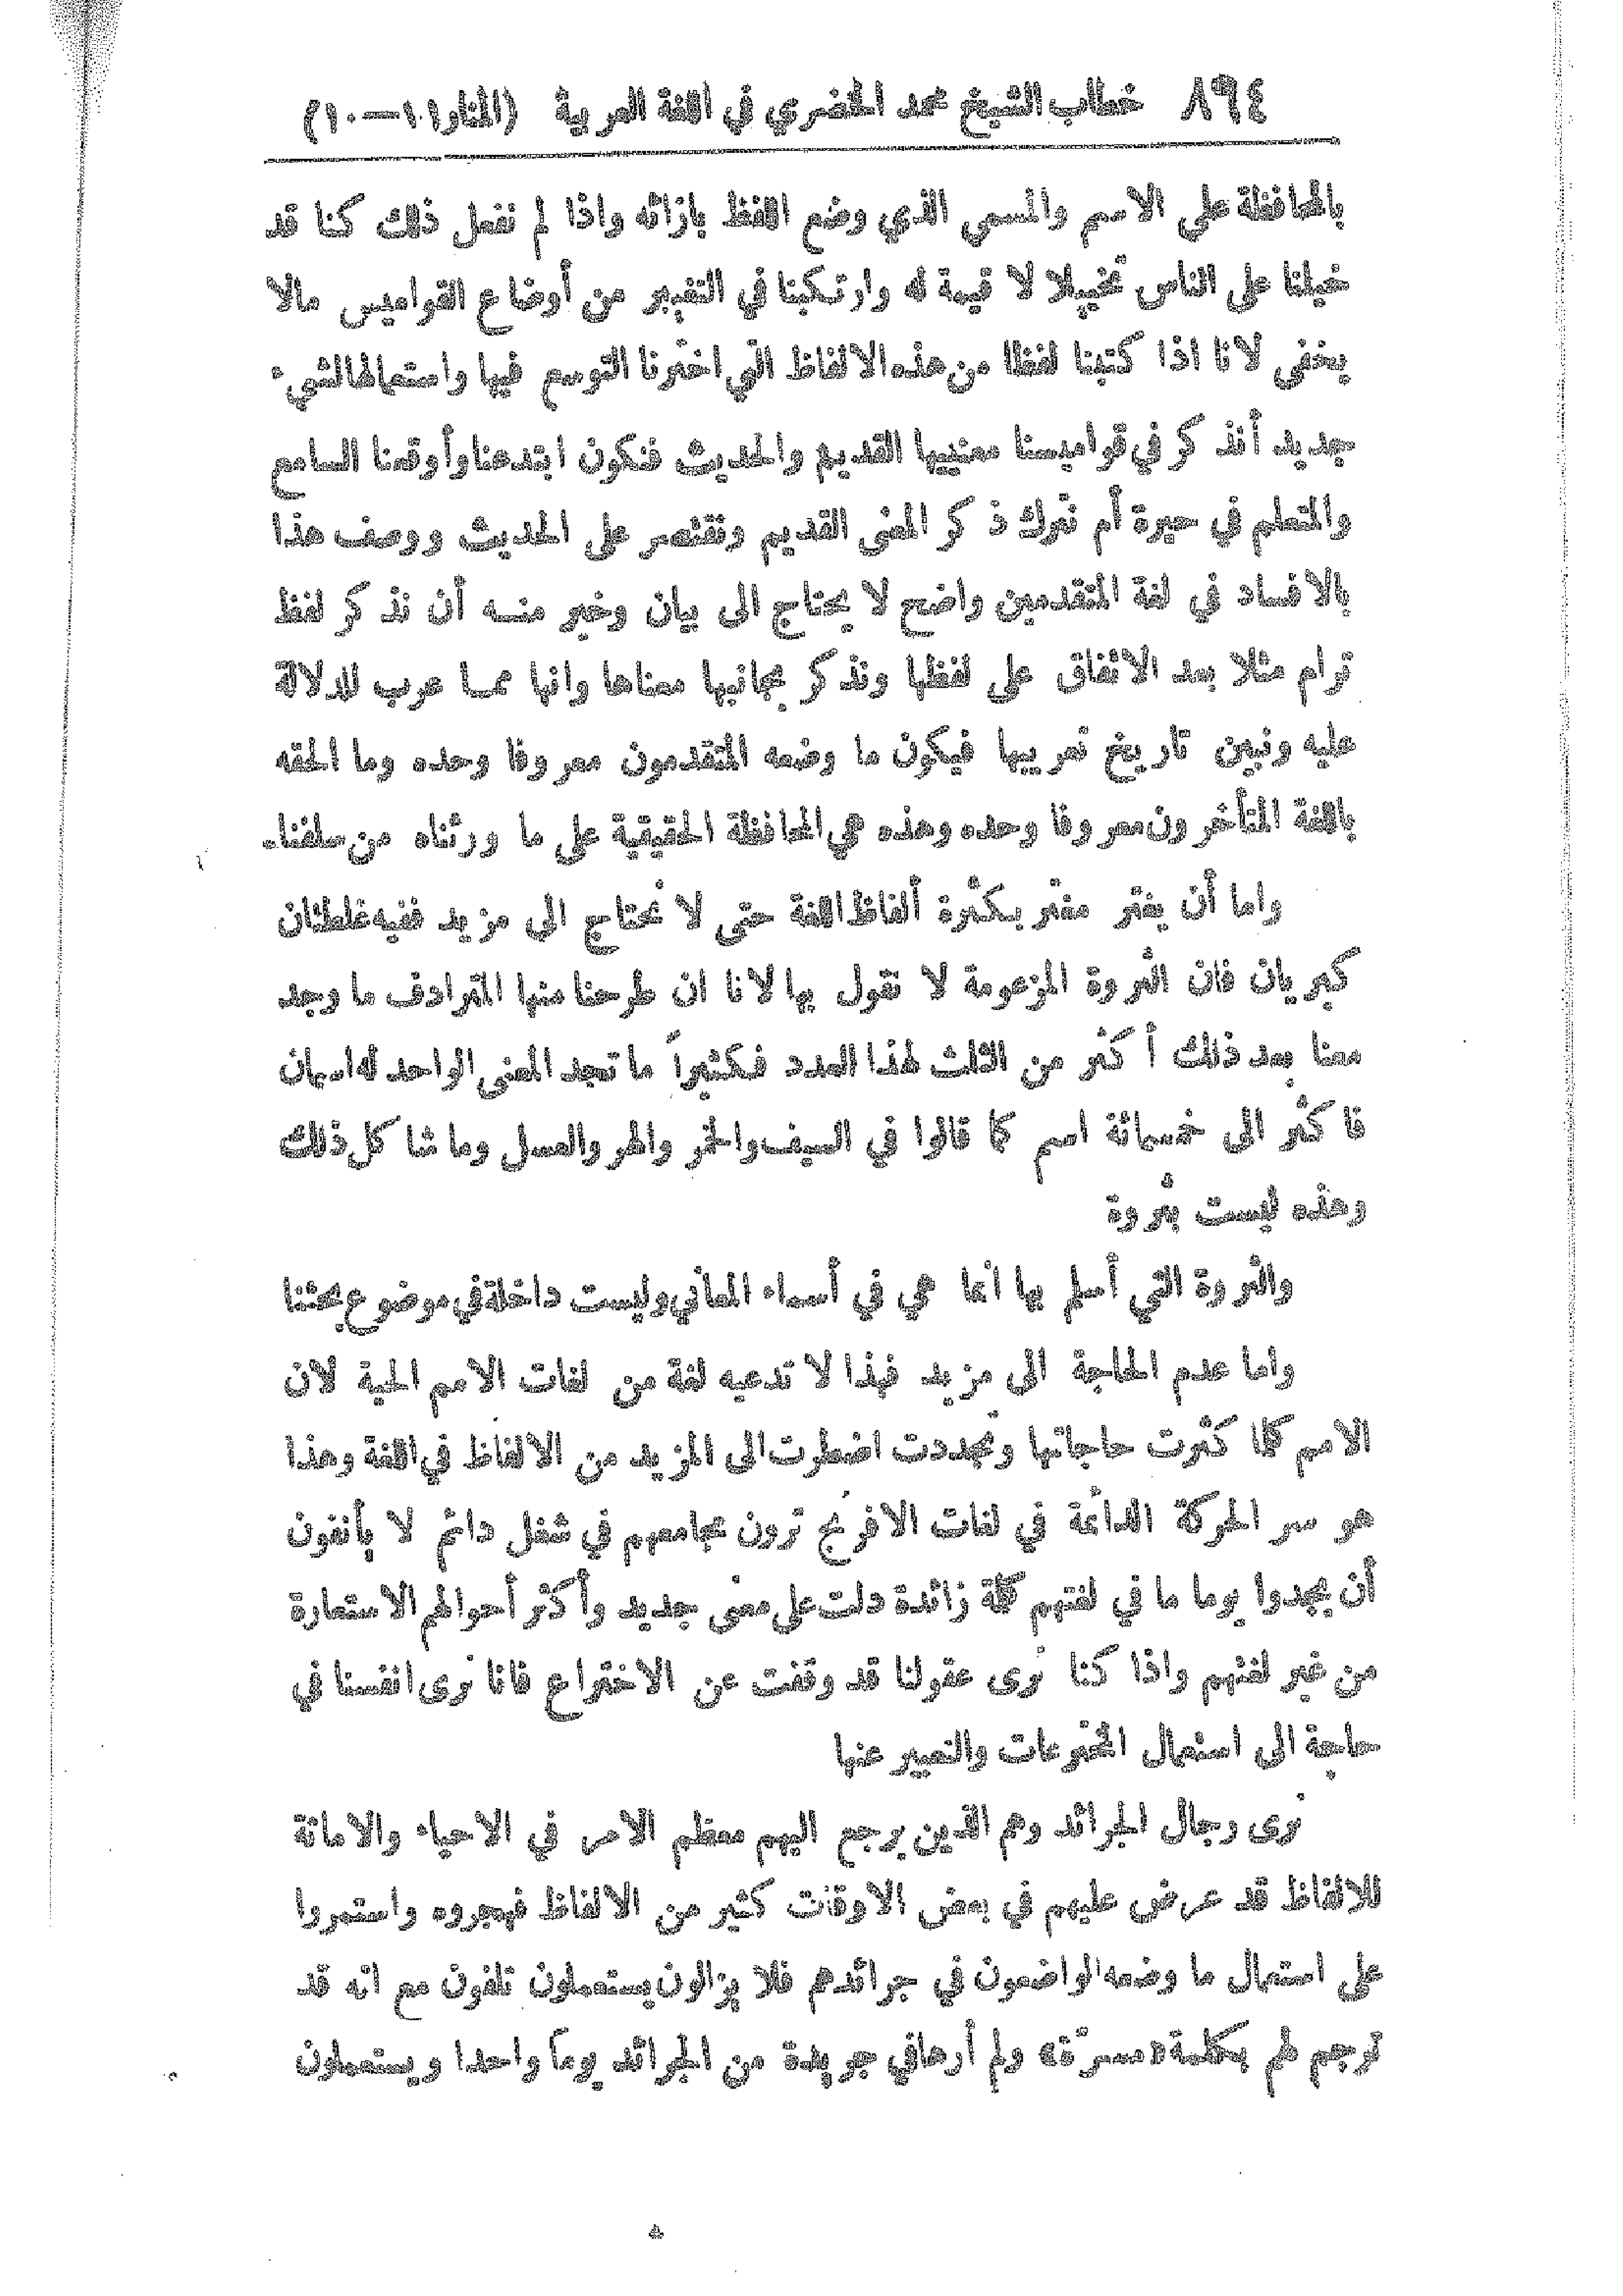 ٨٩٤ خطاب الشيخ محمد الخضري في اللغة العربية (المنار ١-١٠)
بالمحافظة على الاسم والمسمى الذي وضع اللفظ بازائه واذا لم نفعل ذلك كنا قد
خيلنا على الناس تخييلا لا قيمة له وارتكبنا في التغيير من أوضاع القواميس مالا
يخفى لانا اذا كتبنا لفظا من هذه الالفاظ التي اخترنا التوسع فيها واستعمالها لشيء
جديد أنذكر في قواميسنا معنييها القديم والحديث فنكون ابتدعنا وأوقعنا السامع
والمتعلم في حيرة أم نترك ذكر المعنى القديم ونقتصر على الحديث ووصف هذا
بالافساد في لغة المتقدمين واضح لا يحتاج الى بيان وخير منه أن نذكر لفظ
ترام مثلا بعد الاتفاق على لفظها ونذكر بجانبها معناها وانها مما عرب للدلالة
عليه ونبين تاريخ تعريبها فيكون ما وضعه المتقدمون معروفا وحده وما الحقه
باللغة المتأخرون معروفا وحده وهذه هي المحافظة الحقيقية على ما ورثناه من سلفنا.
واما أن يغتر مغتر بكثرة ألفاظ اللغة حتى لا نحتاج الى مزيد ففيه غلطتان
كبريان فان الثروة المزعومة لا نقول بها لانا ان طرحنا منها المترادف ما وجد
معنا بعد ذلك أكثر من الثلث لهذا العدد فكثيراً ما تجد المعنى الواحد له اسمان
فاكثر الى خمسمائة اسم كما قالوا في السيف والخمر والهر والعسل وما شاكل ذلك
وهذه ليست بثروة
والثروة التي أسلم بها انما هي في أسماء المعاني وليست داخلة في موضوع بحثنا
واما عدم الحاجة الى مزيد فهذا لا تدعيه لغة من لغات الامم الحية لان
الامم كلما كثرت حاجاتها وتجددت اضطرت الى المزيد من الالفاظ في اللغة وهذا
هو سر الحركة الدائمة في لغات الافرنج ترون مجامعهم في شغل دائم لا يأنفون
أن يجدوا يوما ما في لغتهم كلمة زائدة دلت على معنى جديد وأكثر أحوالهم الاستعارة
من غير لغتهم واذا كنا نرى عقولنا قد وقفت عن الاختراع فانا نرى انفسنا في
حاجة الى استعمال المخترعات والتعبير عنها
نرى رجال الجرائد وهم الذين يرجع اليهم معظم الامر في الاحياء والاماتة
للالفاظ قد عرض عليهم في بعض الاوقات كثير من الالفاظ فهجروه واستمروا
على استعمال ما وضعه الواضعون في جرائدهم فلا يزالون يستعملون تلفون مع انه قد
ترجم لهم بكلمة «مسرّة» ولم أرها في جريدة من الجرائد يوماً واحدا ويستعملون